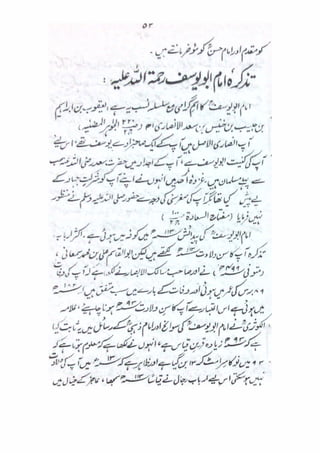 ۵۳
کو مقدم اور امام حسنؒ کو مؤخر مانتے ہیں۔
تذکرۂ امام ابو یوسف رحمۃ اللہ علیہ:
امام ابو یوسفؒ کا اسم گرامی مع سلسلہ نسب یہ ہے، یعقوب بن ابراہیم
بن حبیب بن خنیس بن سعد الانصاری
آپ انصاری الاصل ہیں آپ کے صاحبزادے یوسف تھے اس لیے
آپ کی کنیت ابو یوسف ہے، آپ کے اجداد میں حضرت سعد رضی اللہ عنہ سب
سے پہلے مسلمان ہیں، غزوۂ احد میں انہوں نے اپنے آپ کو شرکت جہاد کے
لیے پیش کیا تھا مگر آپ کی صغر سنی کی وجہ سے حضور صلی اللہ علیہ وسلم نے منظور
نہیں فرمایا (مفتاح السعادۃ
امام ابو یوسفؒ کی پیدائش ۱۱۳ھ میں کوفہ میں ہوئی ہے، اکثر ارباب
تذکرہ آپ کا سن ولادت ۱۱۳ھ لکھتے ہیں لیکن ابو القاسم علی بن محمد سمعانی
(متوفی نے اور صاحب مسالک الابصار نے لکھا ہے کہ آپ کی وفات
۸۹ برس کی عمر میں ہوئی اور وفات کے بارے میں سب متفق ہیں
میں ہوئی ہے اس اعتبار سے آپ کا سن ولادت ۹۳ھ ہونا چاہئے، علامہ
الکوثری نے امام ابو یوسفؒ کی سوانح اور امام زہبیؒ کے رسائل میں ثابت کیا
ہے کہ ۹۳ھ زیادہ قرین قیاس ہے، انہوں نے لکھا ہے کہ معلوم ہوتا ہے کہ
۹۳ میں نو کا سرا مٹ کر ۱۳ بن گیا ہے اور ظاہر ہے کہ ۱۳ھ میں آپ کی ولادت
نہیں ہو سکتی اس لیے ارباب رجال نے قیاساً ۱۱۳ھ سمجھا،